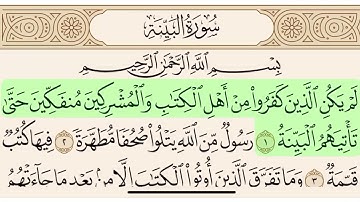 سُورَةُ البَيِّنَةِ
بِسْمِ اللَّهِ الرَّحْمَٰنِ الرَّحِيمِ
لَمْ يَكُنِ الَّذِينَ كَفَرُوا مِنْ أَهْلِ الْكِتَابِ وَالْمُشْرِكِينَ مُنفَكِّينَ حَتَّىٰ
تَأْتِيَهُمُ الْبَيِّنَةُ ١ رَسُولٌ مِّنَ اللَّهِ يَتْلُوا صُحُفًا مُّطَهَّرَةً ٢ فِيهَا كُتُبٌ
قَيِّمَةٌ ٣ وَمَا تَفَرَّقَ الَّذِينَ أُوتُوا الْكِتَابَ إِلَّا مِن بَعْدِ مَا جَاءَتْهُمُ